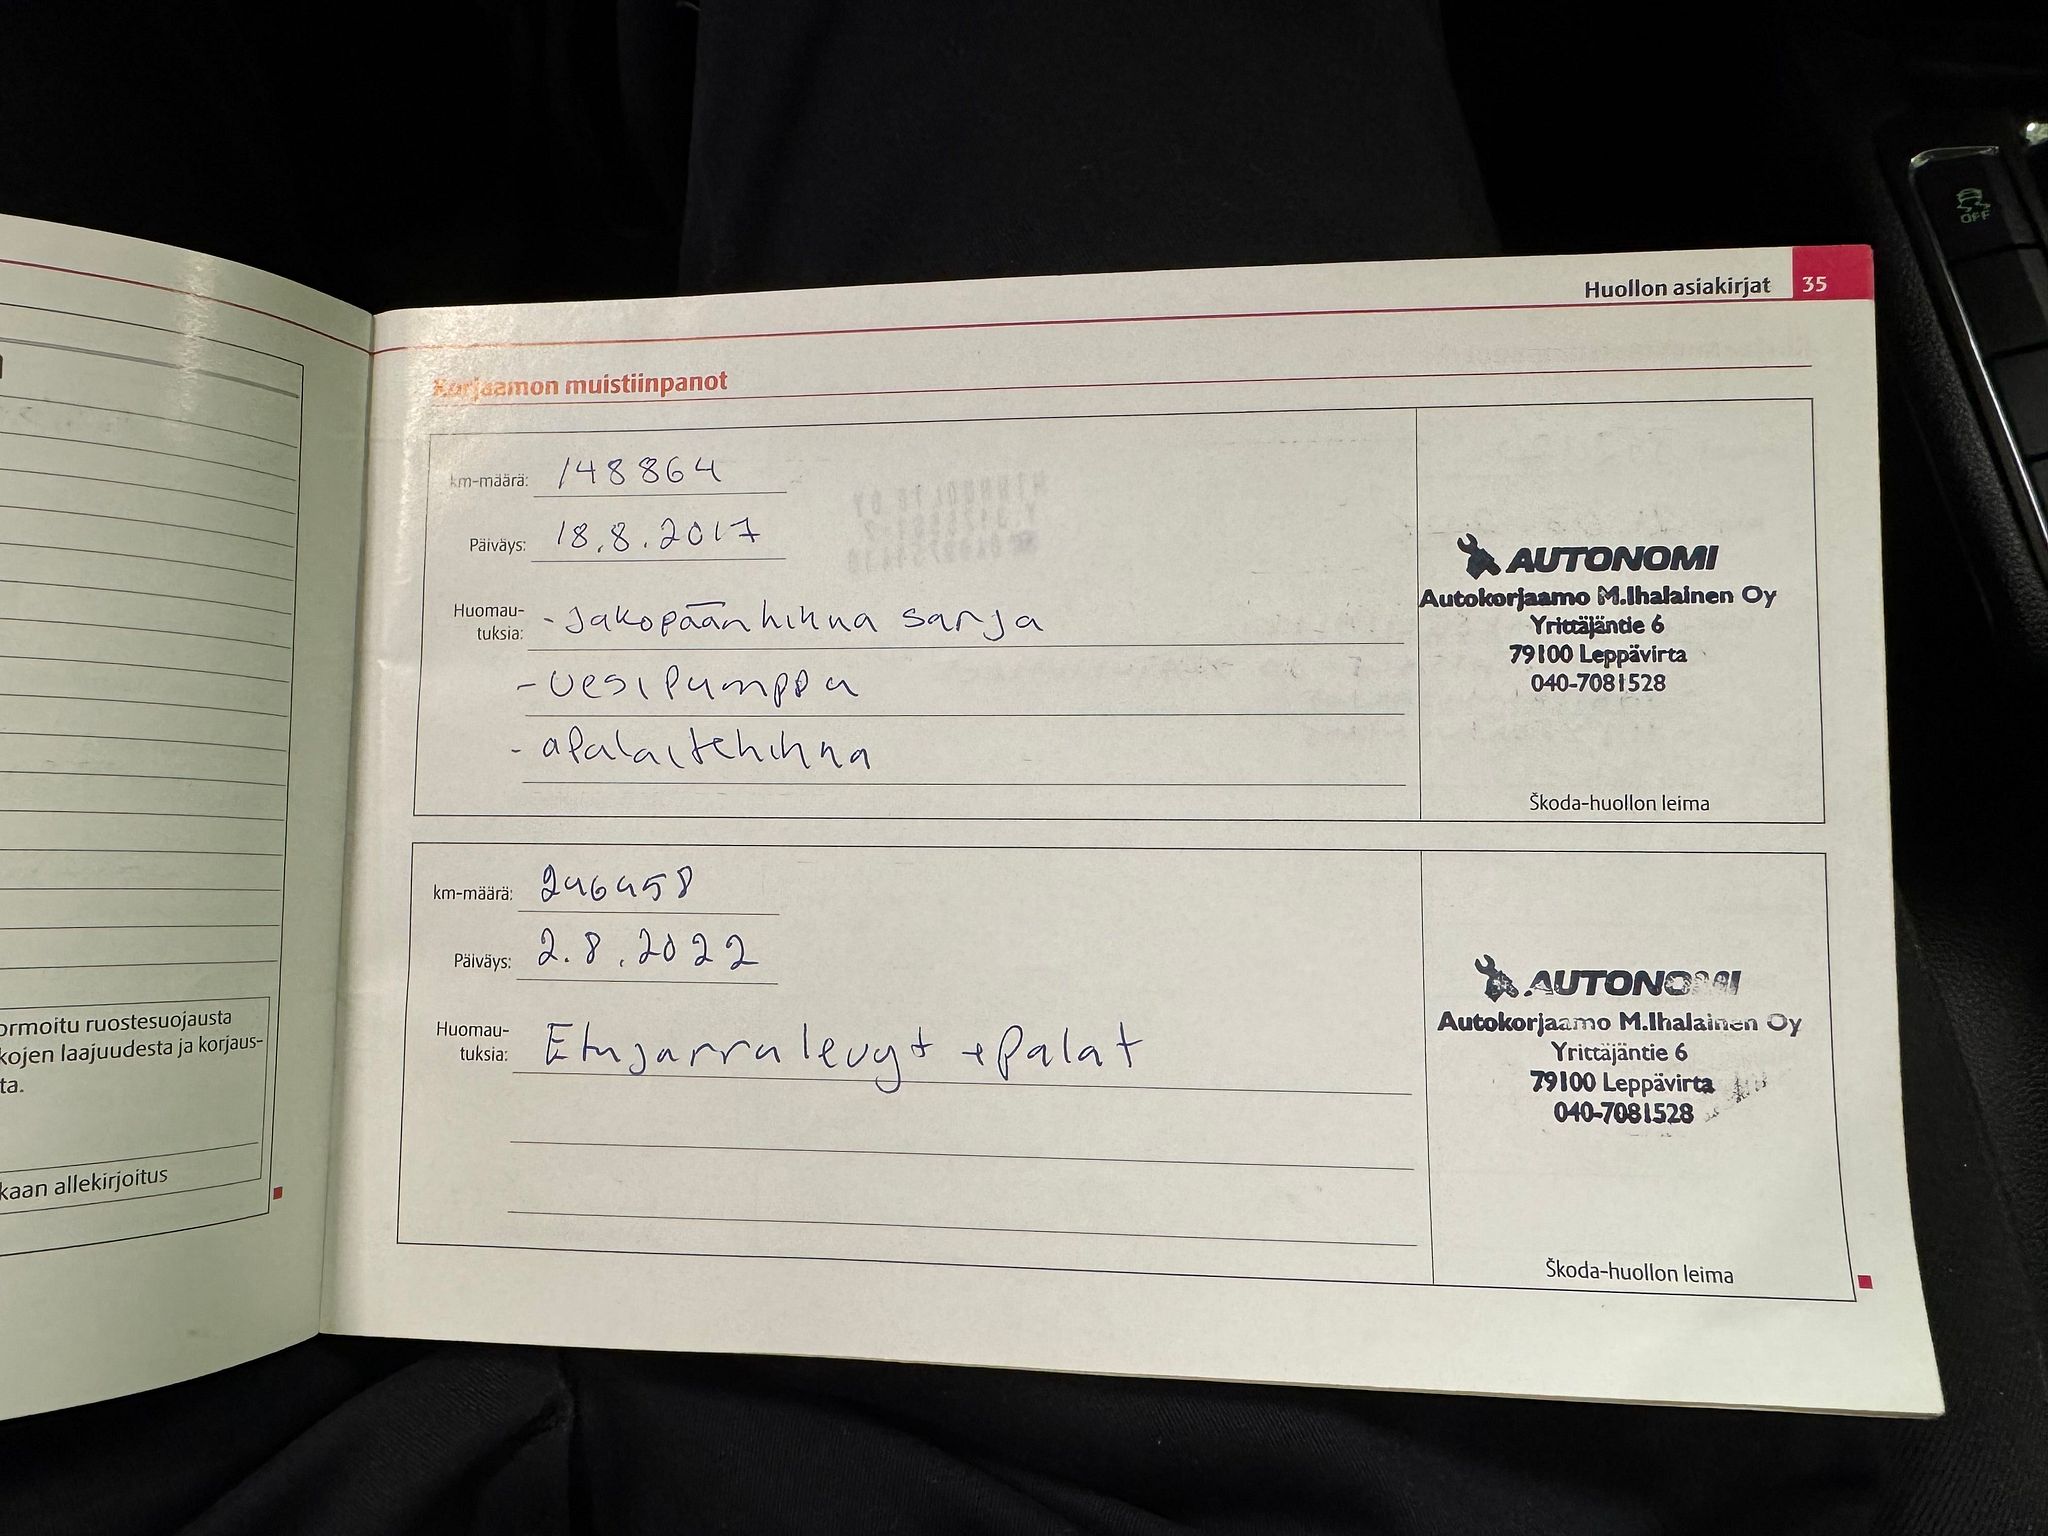 ormoitu ruostesuojausta
kojen laajuudesta ja korjaus-
ta.
kaan allekirjoitus
Huollon asiakirjat 35
Korjaamon muistiinpanot
km-määrä: 148864
Päiväys: 18.8.2017
Huomau-
tuksia: - Jakopäänhihna sarja
- Vesipumppu
- apulaitehihna
AUTONOMI
Autokorjaamo M.Ihalainen Oy
Yrittäjäntie 6
79100 Leppävirta
040-7081528
Škoda-huollon leima
km-määrä: 246458
Päiväys: 2.8.2022
Huomau-
tuksia: Etujarrulevyt + Palat
AUTONOMI
Autokorjaamo M.Ihalainen Oy
Yrittäjäntie 6
79100 Leppävirta
040-7081528
Škoda-huollon leima
OFF